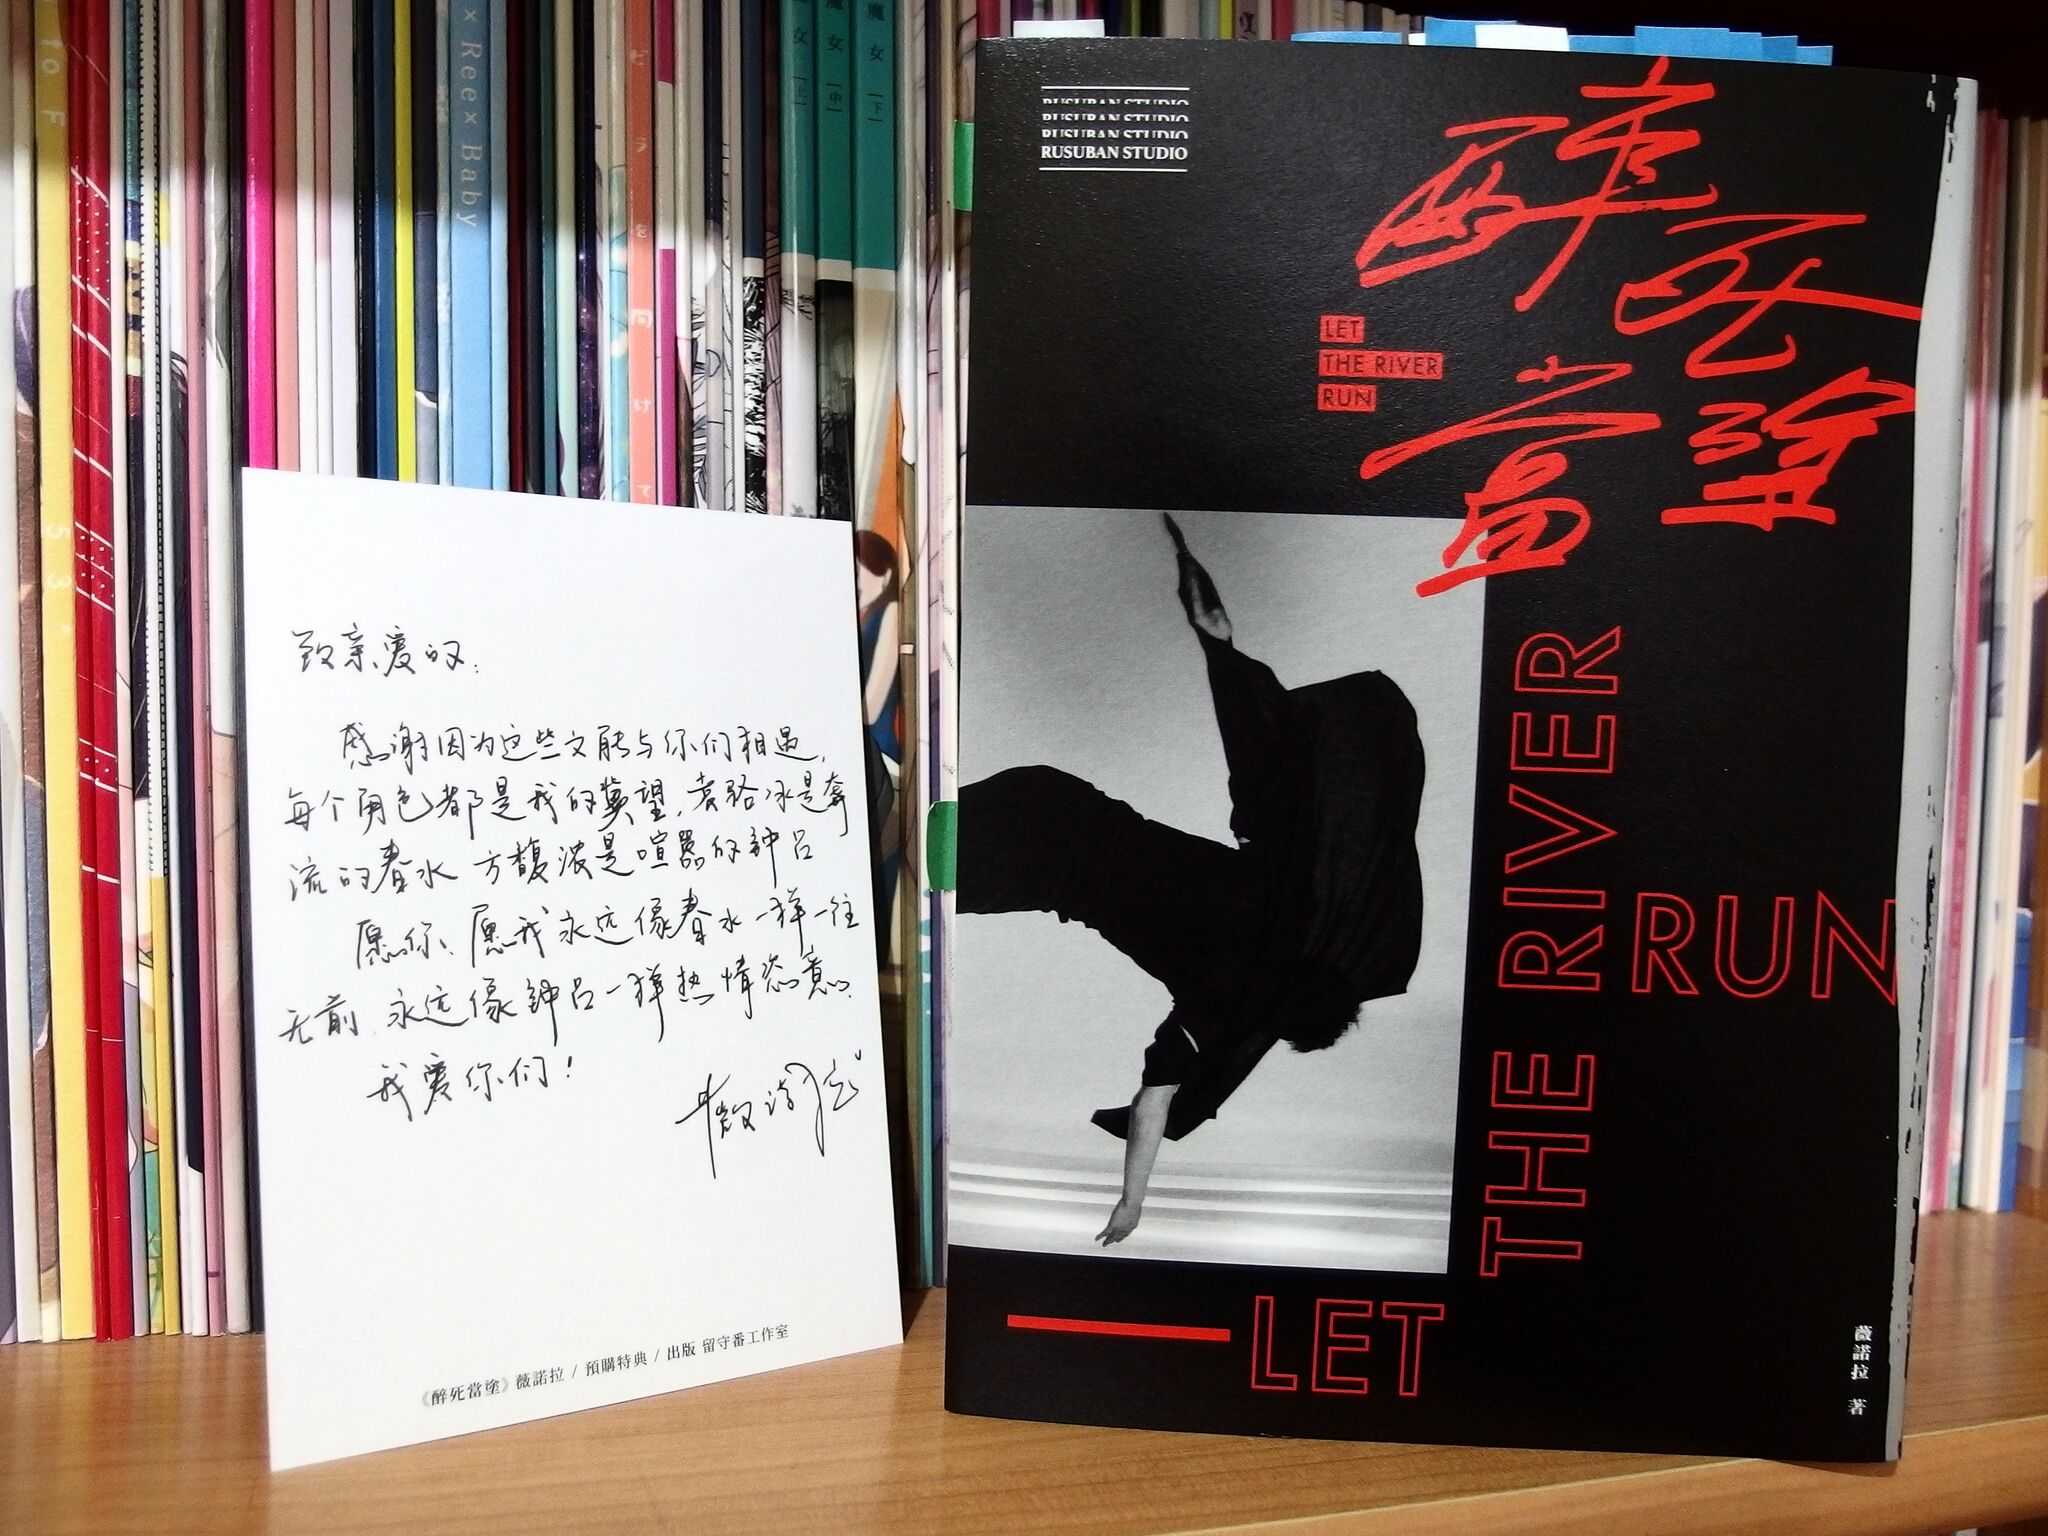 TO F
53
Ree × Baby
ビ
ラ
を
向
け
て
女［上］
魔女［中］
魔女［下］
致亲爱的：
感谢因为这些文能与你们相遇，
每个角色都是我的冀望，袁骆冰是奔
流的春水 方馥浓是喧嚣的钟吕
愿你、愿我永远像春水一样一往
无前，永远像钟吕一样热情恣意。
我爱你们！
薇诺拉
《醉死當塗》薇諾拉 / 預購特典 / 出版 留守番工作室
RUSUBAN STUDIO
RUSUBAN STUDIO
RUSUBAN STUDIO
RUSUBAN STUDIO
醉死
當塗
LET
THE RIVER
RUN
THE RIVER
RUN
LET
薇諾拉 著